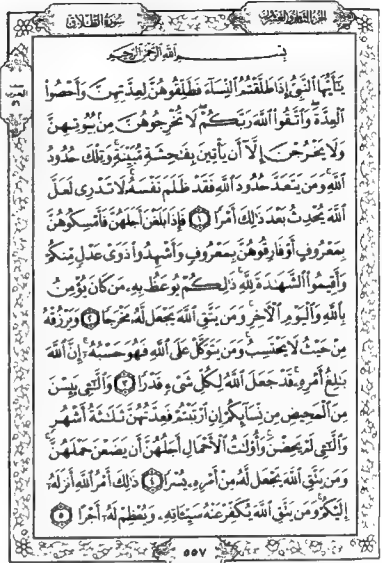 الجزء الثامن والعشرون
سورة الطلاق
بِسْمِ ٱللَّهِ ٱلرَّحْمَٰنِ ٱلرَّحِيمِ
يَٰٓأَيُّهَا ٱلنَّبِىُّ إِذَا طَلَّقْتُمُ ٱلنِّسَآءَ فَطَلِّقُوهُنَّ لِعِدَّتِهِنَّ وَأَحْصُوا۟
ٱلْعِدَّةَ ۖ وَٱتَّقُوا۟ ٱللَّهَ رَبَّكُمْ ۖ لَا تُخْرِجُوهُنَّ مِنۢ بُيُوتِهِنَّ
وَلَا يَخْرُجْنَ إِلَّآ أَن يَأْتِينَ بِفَٰحِشَةٍ مُّبَيِّنَةٍ ۚ وَتِلْكَ حُدُودُ
ٱللَّهِ ۚ وَمَن يَتَعَدَّ حُدُودَ ٱللَّهِ فَقَدْ ظَلَمَ نَفْسَهُۥ ۚ لَا تَدْرِى لَعَلَّ
ٱللَّهَ يُحْدِثُ بَعْدَ ذَٰلِكَ أَمْرًا ١ فَإِذَا بَلَغْنَ أَجَلَهُنَّ فَأَمْسِكُوهُنَّ
بِمَعْرُوفٍ أَوْ فَارِقُوهُنَّ بِمَعْرُوفٍ وَأَشْهِدُوا۟ ذَوَىْ عَدْلٍ مِّنكُمْ
وَأَقِيمُوا۟ ٱلشَّهَٰدَةَ لِلَّهِ ۚ ذَٰلِكُمْ يُوعَظُ بِهِۦ مَن كَانَ يُؤْمِنُ
بِٱللَّهِ وَٱلْيَوْمِ ٱلْءَاخِرِ ۚ وَمَن يَتَّقِ ٱللَّهَ يَجْعَل لَّهُۥ مَخْرَجًا ٢ وَيَرْزُقْهُ
مِنْ حَيْثُ لَا يَحْتَسِبُ ۚ وَمَن يَتَوَكَّلْ عَلَى ٱللَّهِ فَهُوَ حَسْبُهُۥٓ ۚ إِنَّ ٱللَّهَ
بَٰلِغُ أَمْرِهِۦ ۚ قَدْ جَعَلَ ٱللَّهُ لِكُلِّ شَىْءٍ قَدْرًا ٣ وَٱلَّٰٓـِٔى يَئِسْنَ
مِنَ ٱلْمَحِيضِ مِن نِّسَآئِكُمْ إِنِ ٱرْتَبْتُمْ فَعِدَّتُهُنَّ ثَلَٰثَةُ أَشْهُرٍ
وَٱلَّٰٓـِٔى لَمْ يَحِضْنَ ۚ وَأُو۟لَٰتُ ٱلْأَحْمَالِ أَجَلُهُنَّ أَن يَضَعْنَ حَمْلَهُنَّ ۚ
وَمَن يَتَّقِ ٱللَّهَ يَجْعَل لَّهُۥ مِنْ أَمْرِهِۦ يُسْرًا ٤ ذَٰلِكَ أَمْرُ ٱللَّهِ أَنزَلَهُۥٓ
إِلَيْكُمْ ۚ وَمَن يَتَّقِ ٱللَّهَ يُكَفِّرْ عَنْهُ سَيِّـَٔاتِهِۦ وَيُعْظِمْ لَهُۥٓ أَجْرًا ٥
٥٥٧